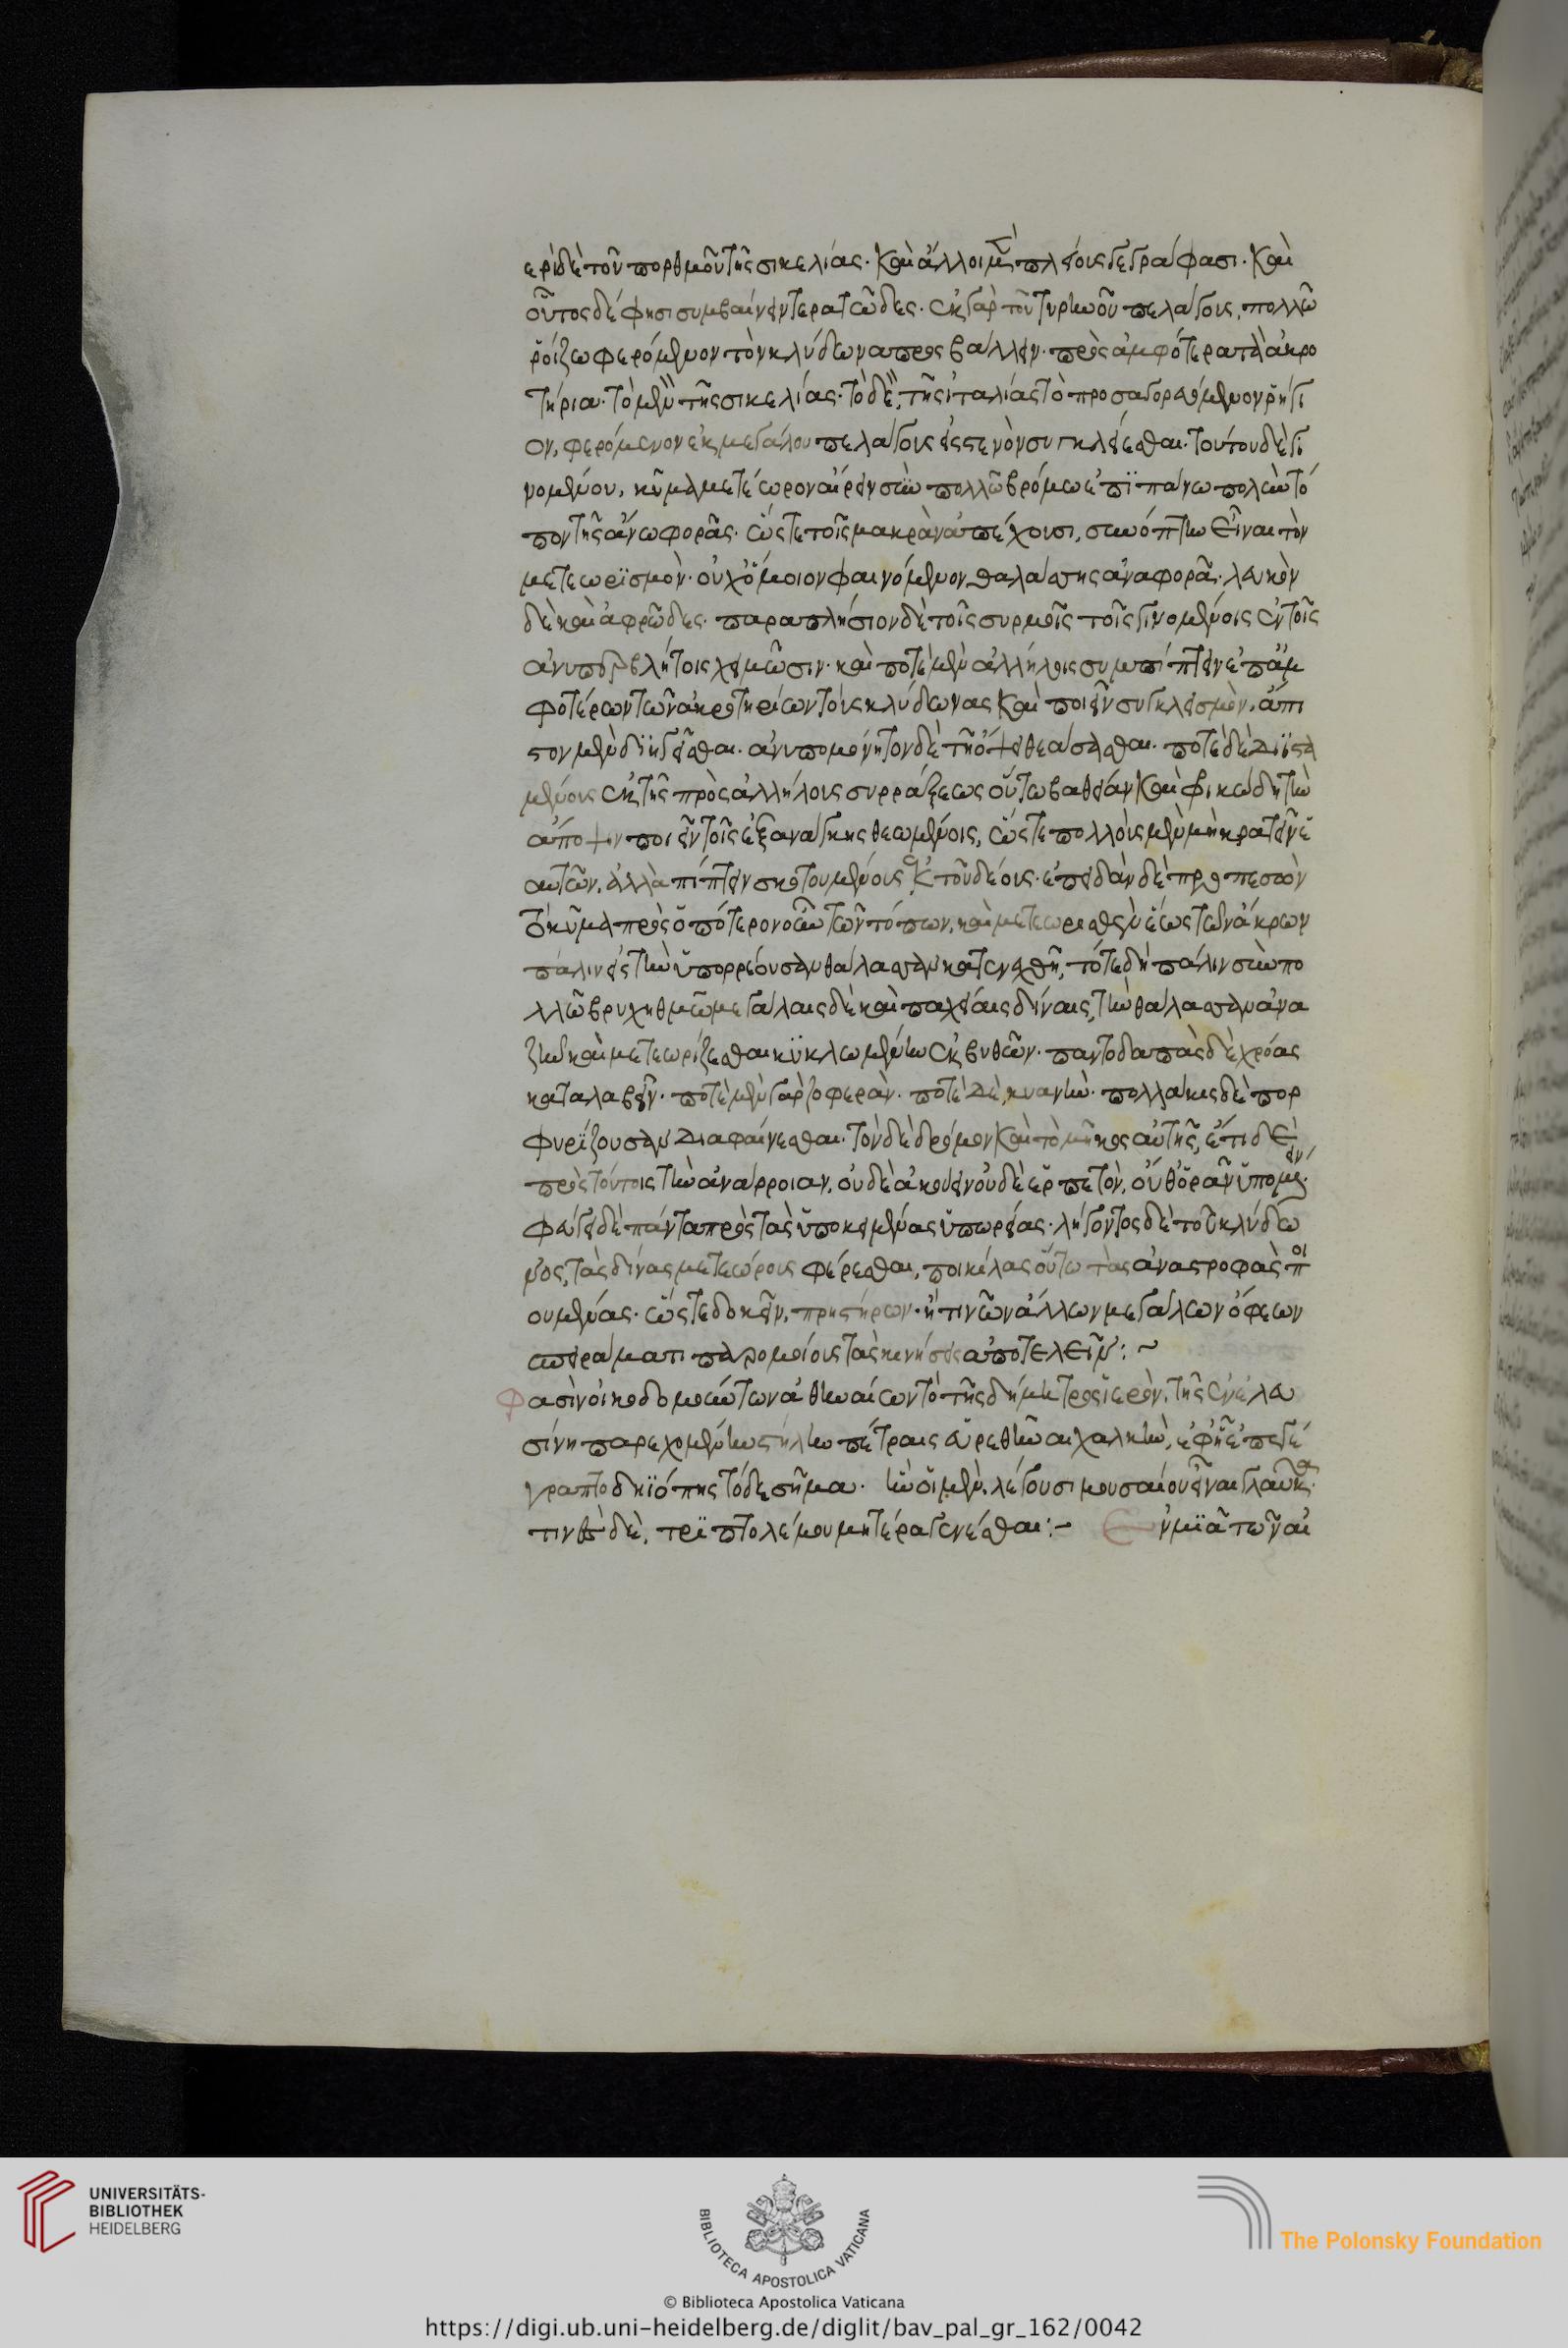 ερὶ δὲ τοῦ πορθμοῦ τῆς σικελίας. καὶ ἄλλοι μὲν πλείους γεγράφασι. καὶ
οὗτος δέ φησι συμβαίνειν τερατῶδες. ἐκ γὰρ τοῦ τυρινοῦ πελάγους, πολλῶ
ῥοίζω φερόμενον τὸν κλύδωνα προσβάλλειν. πρὸς ἀμφότερα τὰ ἀκρο
τήρια. τὸ μὲν τῆς σικελίας. τὸ δὲ, τῆς ἰταλίας τὸ προσαγορευόμενον ῥήγι
ον, φερόμενον ἐκ μεγάλου πελάγους εἰς στενὸν συγκλείεσθαι. τούτου δὲ γι
νομένου, κῦμα μετέωρον αἴρειν σὺν πολλῶ βρόμω ἐπὶ πάνυ πολὺν τό
πον τῆς ἄνω φορᾶς. ὥστε τοῖς μακρὰν ἀπέχουσι, σύνοπτον εἶναι τὸν
μετεωρϊσμὸν. οὐχ ὅμοιον φαινόμενον θαλάσσης ἀναφορᾶ. λευκὸν
δὲ καὶ ἀφρῶδες. παραπλήσιον δὲ τοῖς συρμοῖς τοῖς γινομένοις ἐν τοῖς
ἀνυπερβλήτοις χειμῶσιν. καὶ ποτὲ μὲν ἀλλήλοις συμπίπτειν ἐπ' ἀμ
φοτέρων τῶν ἀκρωτηρίων τοὺς κλύδωνας καὶ ποιεῖν συγκλυσμὸν. ἄπι
στον μὲν διηγεῖσθαι. ἀνυπομόνητον δὲ τῆ ὄψει θεάσασθαι. ποτὲ δὲ διϊστα
μένους ἐκ τῆς πρὸς ἀλλήλους συρράξεως οὕτω βαθεῖαν καὶ φρικώδη τὴν
ἄποψιν ποιεῖν τοῖς ἐξ ἀνάγκης θεωμένοις, ὥστε πολλοὺς μὲν μὴ κρατεῖν ἑ
αυτῶν, ἀλλὰ πίπτειν σκοτουμένους ἐκ τοῦ δέους. ἐπειδὰν δὲ προσπεσὸν
τὸ κῦμα πρὸς ὁπότερον οὖν τῶν τόπων, καὶ μετεωρισθὲν ἕως τῶν ἄκρων
πάλιν εἰς τὴν ὑπορρέουσαν θάλασσαν κατενεχθῆ, τότε δὴ πάλιν σὺν πο
λλῶ βρυχηθμῶ μεγάλαις δὲ καὶ παχείαις δίναις, τὴν θάλασσαν ἀνα
ζεῖν καὶ μετεωρίζεσθαι κϋκλωμένην ἐκ βυθῶν. παντοδαπὰς δὲ χρόας
καταλαβεῖν. ποτὲ μὲν γὰρ ζοφερὰν. ποτὲ δὲ, κυανῆν. πολλάκις δὲ πορ
φυρίζουσαν διαφαίνεσθαι. τὸν δὲ δρόμον καὶ τὸ μῆκος αὐτῆς, ἔτι δὲ
πρὸς τούτοις τὴν ἀνάρροιαν, οὐδὲ ἀκούειν οὐδὲ ἑρπετὸν, οὔθ' ὁρᾶν ὑπομέν
φεύγειν δὲ πάντα πρὸς τὰς ὑποκειμένας ὑπωρείας. λήγοντος δὲ τοῦ κλύδω
νος, τὰς δίνας μετεώρους φέρεσθαι, ποικίλας οὕτω τὰς ἀναστροφὰς ποι
ουμένας. ὥστε δοκεῖν, πρηστήρων. ἤ τινων ἄλλων μεγάλων ὄφεων
σπειράμασι παρομοίους τὰς κινήσεις ἀποτελεῖν: ~
Φασὶν οἰκοδομούντων ἀθηναίων τὸ τῆς δήμητρος ἱερὸν, τῆς ἐν ἐλευ
σίνι παρεχομένην στήλην πέτραις εὑρεθῆναι χαλκῆν, ἐφ' ἧ ἐπεγέ
γραπτο δηϊόπης τόδε σῆμα. ἣν οἱ μὲν, λέγουσι μουσαίου εἶναι γυναῖκα.
τινὲς δὲ, τρϊπτολέμου μητέρα γενέσθαι: – Ἐν μϊᾶ τῶν αἰ
UNIVERSITÄTS-
BIBLIOTHEK
HEIDELBERG
BIBLIOTECA APOSTOLICA VATICANA
The Polonsky Foundation
© Biblioteca Apostolica Vaticana
https://digi.ub.uni-heidelberg.de/diglit/bav_pal_gr_162/0042